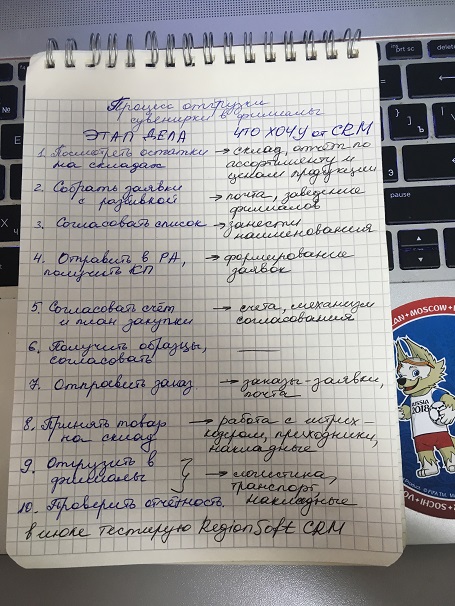 Процесс отгрузки
сувенирки в филиалы
ЭТАП ДЕЛА ЧТО ХОЧУ от CRM
1. Посмотреть остатки → склад, отчёт по
на складах ассортименту и
ценам продукции
2. Собрать заявки → почта, заведение
с разбивкой филиалов
3. Согласовать список → занести
наименования
4. Отправить в РА, → формирование
получить КП заявок
5. Согласовать счёт → счета, механизм
и план закупки согласования
6. Получить образцы, —
согласовать
7. Отправить заказ → заказы-заявки,
почта
8. Принять товар → работа с штрих-
на склад кодером, приходники,
накладные
9. Отгрузить в
филиалы } → логистика,
транспорт,
10. Проверить отчётность накладные
в июле тестирую RegionSoft CRM
prt sc
delete
home
№
pause
MOSCOW
RUSSIA
2018
SOCHI